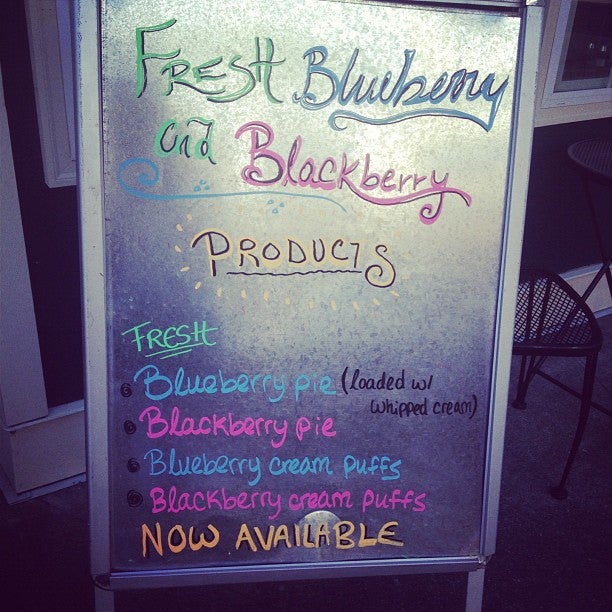 FRESH Blueberry
and Blackberry
PRODUCTS
FRESH
Blueberry pie (loaded w/
whipped cream)
Blackberry pie
Blueberry cream puffs
Blackberry cream puffs
NOW AVAILABLE